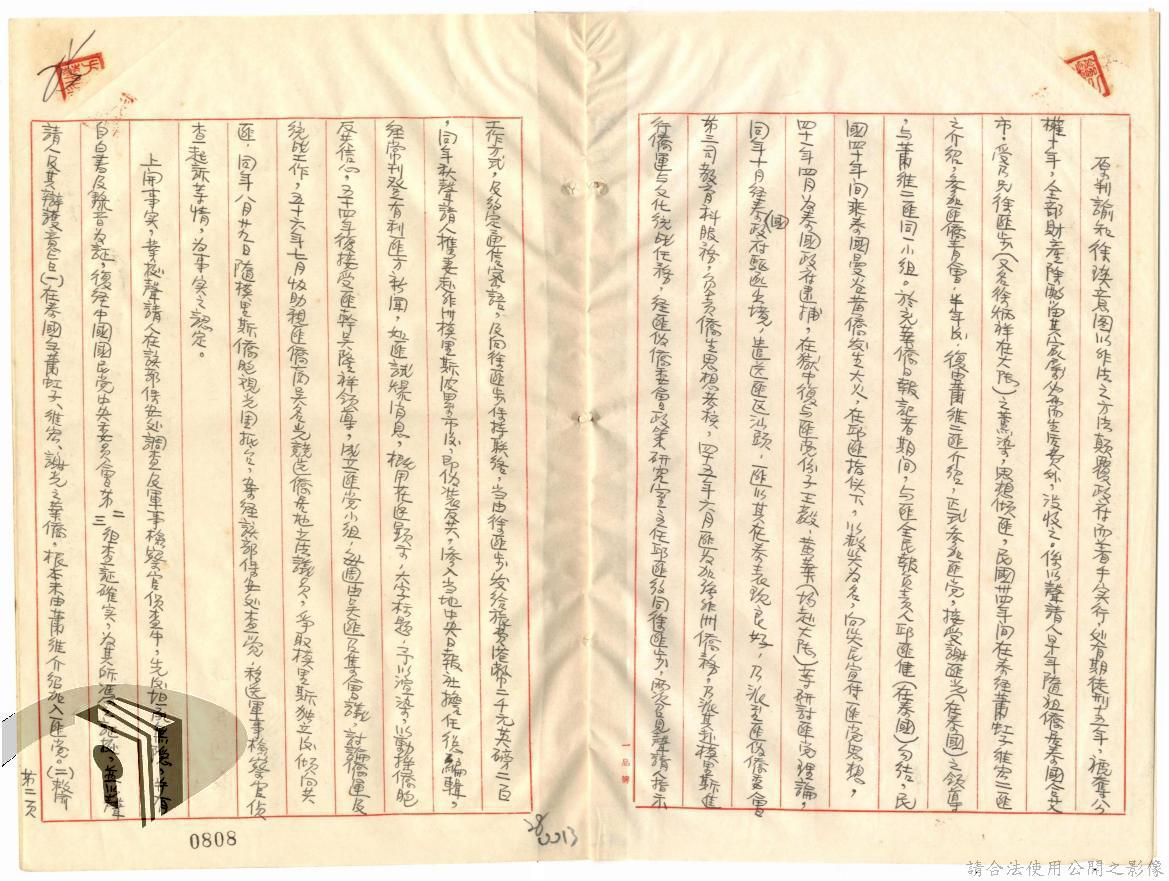 原判諭知徐瑛意圖以非法之方法顛覆政府而著手實行處有期徒刑十五年,褫奪公
權十年,全部財產除酌留其家屬必需生活費外,沒收之。係以聲請人早年隨祖僑居泰國合艾
市,受乃兄徐匪步(又名徐炳祥在大陸)之薰染,思想傾匪,民國卅四年間在泰經蕭虹子維宏二匪
之介紹,參加匪僑青會,半年後,復由蕭維二匪介紹,正式參加匪黨,接受謝匪光(在泰國)之領導
,與蕭維二匪同一小組。於充華僑日報記者期間,與匪全民報負責人邱匪健(在泰國)勾結,民
國四十年間來泰國曼谷黃僑發生大火,在邱匪指使下,以救災為名,向災民宣傳匪黨思想,
四十一年四月為泰國政府逮捕,在獄中復與匪黨份子王毅 黃華(均赴大陸)等研討匪黨理論,
同年十月經泰國政府驅逐出境,遣送匪區汕頭,匪以其在泰表現良好,乃派至匪偽僑委會
第三司教育科服務,負責僑生思想考核,四十五年六月匪為加強非洲僑務,乃派其赴模里斯進
行僑運與文化統戰任務,經匪偽僑委會政策研究室主任邱匪及同徐匪步,兩次召見聲請人指示
工作方式,及約定通信密語,及向徐匪步保持聯絡,當由徐匪步發給旅費港幣二千元英磅二百
,同年秋聲請人攜妻赴非洲模里斯波累市後,即偽裝反共,滲入當地中央日報社擔任後編輯,
經常刊登有利匪方新聞,如匪試爆消息,概用在匪題示,大字標題,予以渲染,以動搖僑胞
反共信心,五十四年後接受匪幹吳隆祥領導,成立匪黨小組,每週由吳匪召集會議,討論僑運及
統戰工作,五十六年七月收助親匪僑商吳名光競選僑居地立法議員,爭取模里斯獨立後傾向共
匪,同年八月廿九日隨模里斯僑胞觀光團抵台,案經該部保安處查覺,移送軍事檢察官偵
查起訴等情,為事實之認定。
上開事實,業據聲請人在該部保安處調查及軍事檢察官偵查中,先後坦承無隱,並有
自白書及錄音為證,復經中國國民黨中央委員會第二三組查證確實,為其所憑之論據,並以聲
請人及其辯護意旨(一)在泰國與蕭虹子、維宏、謝光之華僑。根本未由蕭維介紹加入匪黨。(二)救濟
第二頁
0808
28
0013
一品牌
請合法使用公開之影像